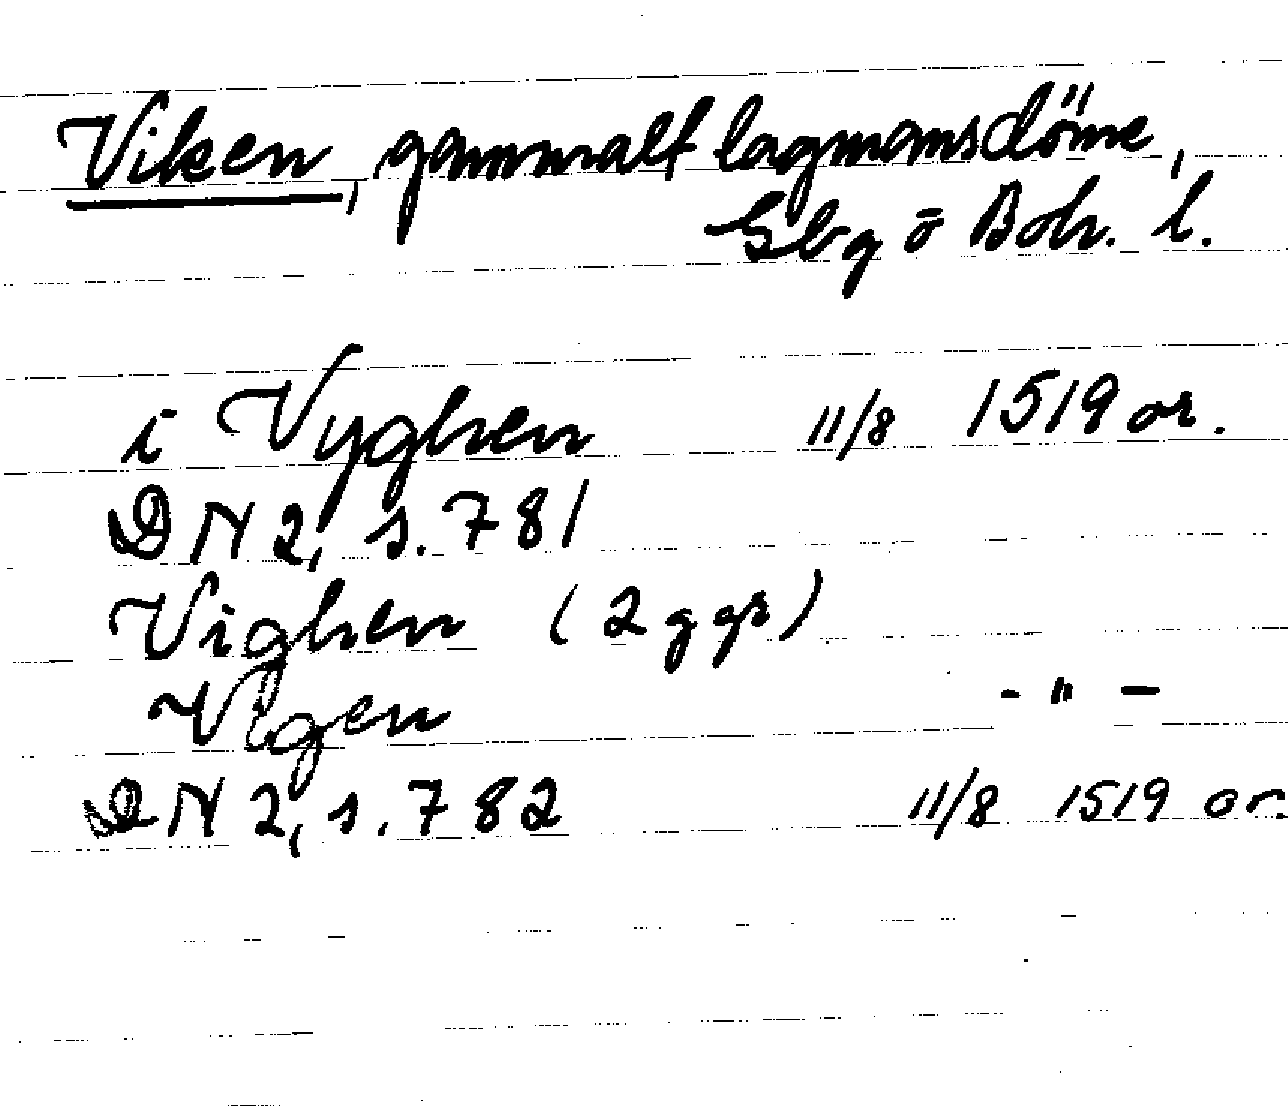 Viken, gammalt lagmansdöme,
Gbg o Boh. l.
i Vyghen 11/8 1519 or.
DN 2, s. 781
Vighen (2 ggr)
Vigen - " -
DN 2, s. 782 11/8 1519 or.